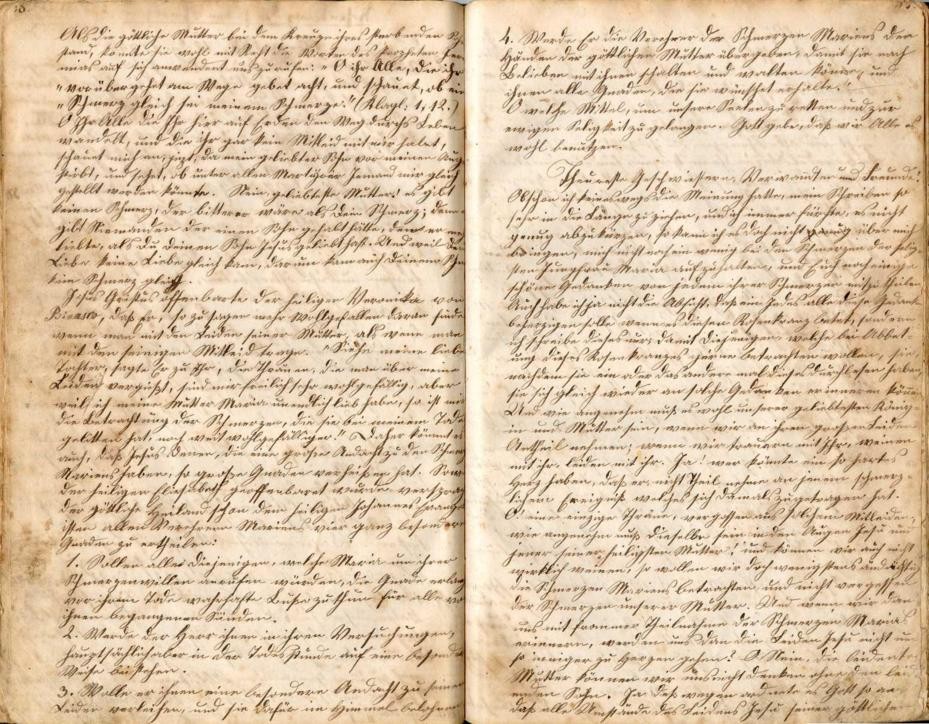 Als die göttliche Mutter bei dem Kreuze ihres sterbenden Soh
stand, konnte sie wohl mit Recht die Worte des Profeten Jere
mias auf sich anwenden und ausrufen: "O ihr Alle, die ihr
"vorübergehet am Wege gebet acht, und schauet, ob ein
"Schmerz gleich sei meinem Schmerze." (Klagl. 1, 12.)
O Ihr Alle die Ihr hier auf Erden den Weg durchs Leben
wandelt, und die ihr gar kein Mitleid mit mir habet,
schauet mich an, jezt, da mein geliebter Sohn vor meinen Aug
stirbt, und sehet, ob unter allen Martyrer Jemand mir gleich
gestellt werden könnte. Nein, geliebteste Mutter! es gibt
keinen Schmerz, der bitterer wäre als Dein Schmerz; denn
gibt Niemanden der einen Sohn gehabt hätte, den er m
liebte, als du deinen Sohn Jesus geliebt hast. Und weil dein
Liebe keine Liebe gleich kam, darum kam auch Deinem Schm
kein Schmerz gleich.
Jesus Christus offenbarte der heiligen Veronika von
Binasco, daß Er, so zu sagen mehr Wohlgefallen daran finde
wenn man mit den Leiden seiner Mutter, als wenn man
mit den seinigen Mitleid trage. "Siehe meine liebe
Tochter, sagte Er zu Ihr, die Thränen, die man über meine
Leiden vergießt, sind mir freilich sehr wohlgefällig, aber
weil ich meine Mutter Maria unendlich lieb habe, so ist mir
die Betrachtung der Schmerzen, die sie bei meinem Tode
gelitten hat, noch weit wohlgefälliger." Daher kommt es
auch, daß Jesus Denen, die eine große Andacht zu den Schmer
Mariens haben, so große Gnaden verheißen hat. So wie
der heiligen Elisabeth geoffenbaret wurde, versprach
der göttliche Heiland schon dem heiligen Johannes
allen Verehrern Mariens vier ganz besondere
Gnaden zu ertheilen:
1. Sollen alle Diejenigen, welche Maria um ihrer
Schmerzen willen anrufen würden, die Gnade erlang
vor ihrem Tode wahrhafte Buße zu thun für alle von
ihnen begangenen Sünden.
2. Werde der Herr ihnen in ihren Versuchungen,
hauptsächlich aber in der Todesstunde auf eine besonder
Weise beistehen.
3. Wolle er ihnen eine besondere Andacht zu seinem
Leiden verleihen, und sie dafür im Himmel belohnen
4. Werde Er die Verehrer der Schmerzen Mariens den
Händen der göttlichen Mutter übergeben, damit sie nach
Belieben mit ihnen schalten und walten könne, und
ihnen alle Gnaden, die sie wünschet erhalte.
O welche Mittel, um unsere Seelen zu retten und zur
ewigen Seligkeit zu gelangen. Gott gebe, daß wir Alle es
wohl benützen.
Theureste Geschwistern, Verwandte und Freunde!
Obschon ich keineswegs die Meinung hatte, mein Schreiben so
sehr in die Länge zu ziehen, und ich immer suchte, es nicht
genug abzukürzen, so kann ich es doch nicht über mich
bringen, mich nicht noch ein wenig bei den Schmerzen der selig
sten Jungfrau Maria aufzuhalten, und Euch noch einige
schöne Gedanken von jedem ihrer Schmerzen mitzutheilen
Auch habe ich ja nicht die Absicht, daß ein Jedes alle diese Gedank
beherzigen solle wenn es diesen Rosenkranz betet, sondern
ich schreibe dieses nur, damit Diejenigen, welche bei Abbet
ung dieses Rosenkranzes gerne betrachten wollen, sie,
nachdem sie ein oder das andere mal dieses durchlesen haben,
sie sich gleich wieder an solche Gedanken erinnern könn
Und wie angenehm muß es wohl unserer geliebtesten König
in und Mutter sein, wenn wir an ihren großen Leiden
Antheil nehmen; wenn wir trauern mit Ihr, weinen
mit ihr, leiden mit ihr. Ja! wer könnte ein so hartes
Herz haben, daß er nicht Theil nehme an jenem schmerz
lichen Ereigniß welches sich damals zugetragen hat.
O eine einzige Thräne, vergossen aus solchem Mitleiden,
wie angenehm muß dieselbe sein in den Augen Jesu und
jener seiner heiligsten Mutter! und können wir auch nicht
wirklich weinen, so wollen wir doch wenigstens andächtig
die Schmerzen Mariens betrachten, und nicht vergessen
der Schmerzen unserer Mutter. Und wenn wir dann
uns mit frommer Theilnahme der Schmerzen Mariä
erinnern, werden uns dan die Leiden Jesu nicht um
so inniger zu Herzen gehen? O Nein, die leidende
Mutter können wir uns nicht denken ohne den lei
denden Sohn. Ja deßwegen ordnete es Gott so an,
daß alle Umstände des Leidens Jesu seiner göttliche